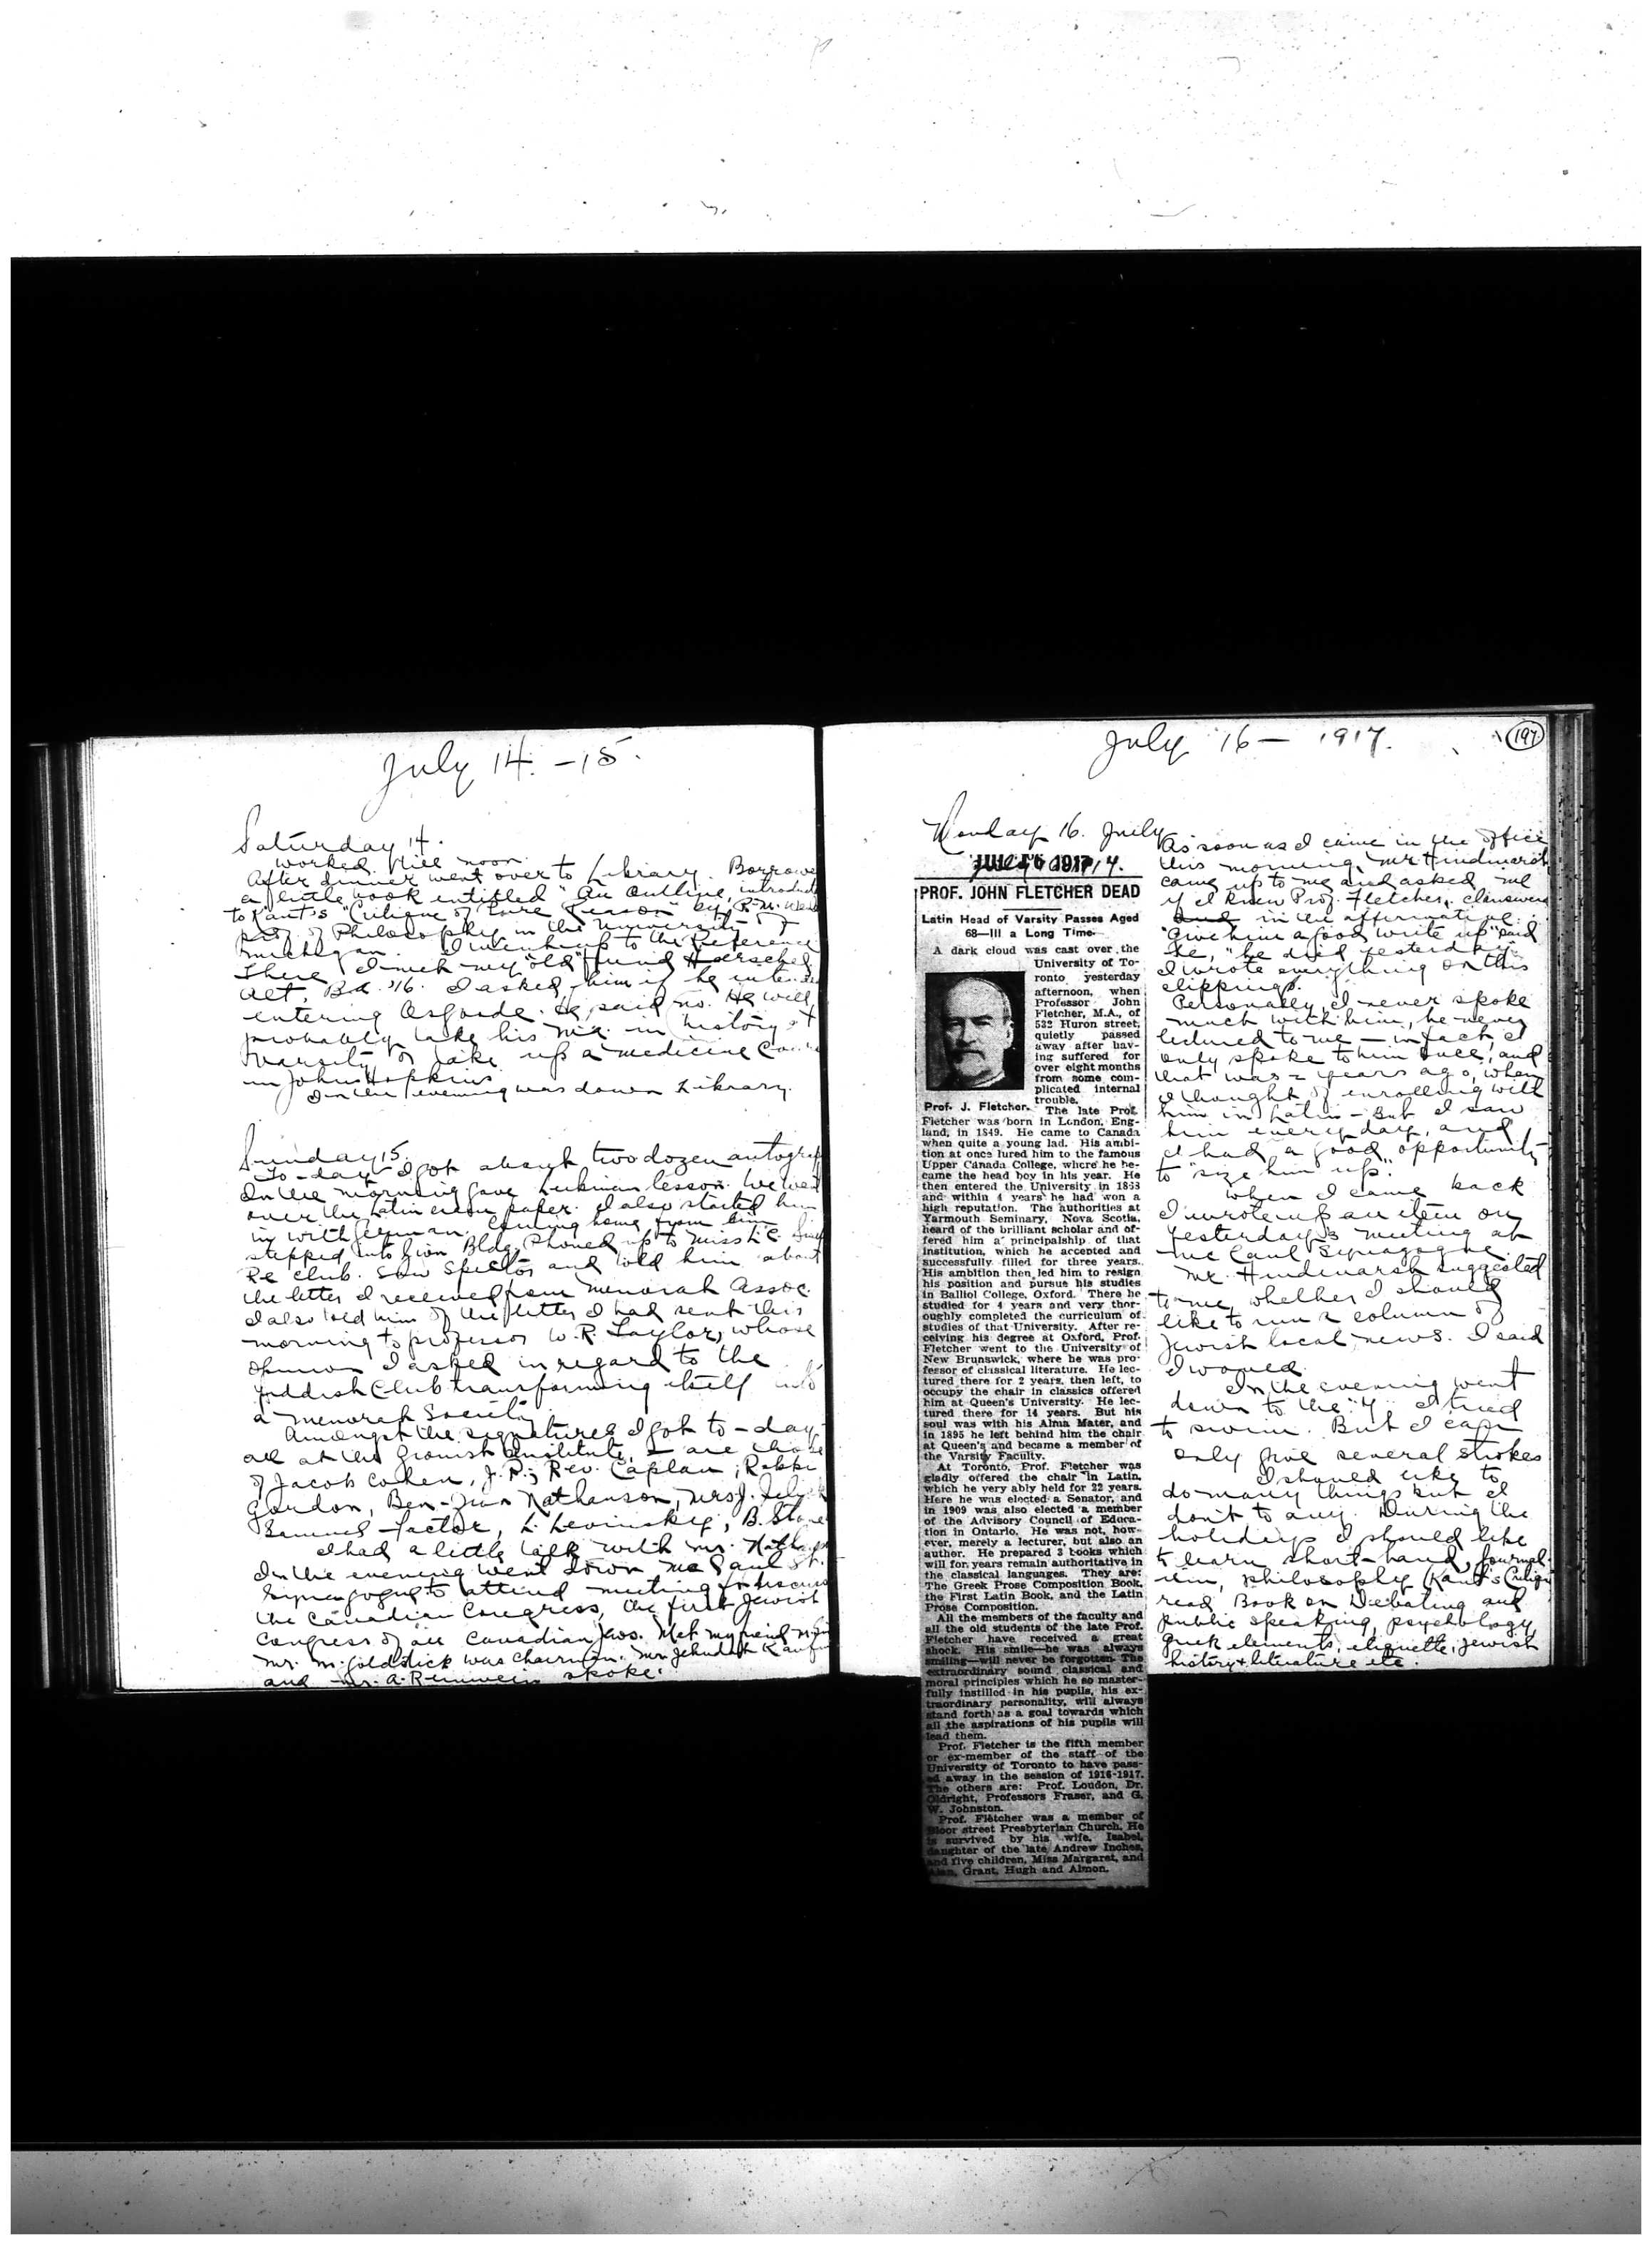 July 14 - 15.
Saturday 14.
Worked till noon.
After dinner went over to Library. Borrowe
a little book entitled "An Outline introduct
to Kant's "Critique of Pure Reason" by R. M. Wen
prof. of Philosophy in the University of
Michigan. I went up to the Reference
There I met my "old" friend Herschel
Alt, B.A. '16. I asked him if he intends
entering Osgoode. He said no. He will
probably take his M.A. in history at
Varsity or take up a medicine Course
in Johns Hopkins.
In the evening was down Library.
Sunday 15.
To-day I got about two dozen autograp
In the morning gave lesson. We went
over the Latin exam paper. I also started him
in with German. Coming home from him
stepped into Zion Bldg. Phoned up to Miss
Re club. Saw Spector and told him about
the letter I received from Menorah Assoc.
I also told him of the letter I had sent this
morning to professor W. R. Taylor, whose
opinion I asked in regard to the
Yiddish Club transforming itself into
a Menorah Society.
Amongst the signatures I got to-day
all at the Zionist Institute, - are those
of Jacob Cohen, J.P.; Rev. Caplan; Rabbi
Gordon, Ben-Zion Nathanson, Mrs J.
Samuel Factor, L. Levinsky, B. Stone
I had a little talk with Mr. Nathan
In the evening went down McCaul St.
Synagogue to attend meeting to discuss
the Canadian Congress, the first Jewish
Congress of all Canadian Jews. Met my friend
Mr. M. Goldstick was chairman. Mr. Jehudah Kaufm
and Mr. A. spoke.
July 16 - 1917.
197
Monday 16. July
PROF. JOHN FLETCHER DEAD
Latin Head of Varsity Passes Aged
68—Ill a Long Time.
A dark cloud was cast over the
University of To-
ronto yesterday
afternoon, when
Professor John
Fletcher, M.A., of
532 Huron street,
quietly passed
away after hav-
ing suffered for
over eight months
from some com-
plicated internal
trouble.
Prof. J. Fletcher.
The late Prof.
Fletcher was born in London, Eng-
land, in 1849. He came to Canada
when quite a young lad. His ambi-
tion at once lured him to the famous
Upper Canada College, where he be-
came the head boy in his year. He
then entered the University in 1868
and within 4 years he had won a
high reputation. The authorities at
Yarmouth Seminary, Nova Scotia,
heard of the brilliant scholar and of-
fered him a principalship of that
institution, which he accepted and
successfully filled for three years.
His ambition then led him to resign
his position and pursue his studies
in Balliol College, Oxford. There he
studied for 4 years and very thor-
oughly completed the curriculum of
studies of that University. After re-
ceiving his degree at Oxford, Prof.
Fletcher went to the University of
New Brunswick, where he was pro-
fessor of classical literature. He lec-
tured there for 2 years, then left, to
occupy the chair in classics offered
him at Queen's University. He lec-
tured there for 14 years. But his
soul was with his Alma Mater, and
in 1895 he left behind him the chair
at Queen's and became a member of
the Varsity Faculty.
At Toronto, Prof. Fletcher was
gladly offered the chair in Latin,
which he very ably held for 22 years.
Here he was elected a Senator, and
in 1909 was also elected a member
of the Advisory Council of Educa-
tion in Ontario. He was not, how-
ever, merely a lecturer, but also an
author. He prepared 3 books which
will for years remain authoritative in
the classical languages. They are:
The Greek Prose Composition Book,
the First Latin Book, and the Latin
Prose Composition.
All the members of the faculty and
all the old students of the late Prof.
Fletcher have received a great
shock. His smile—he was always
smiling—will never be forgotten. The
extraordinary sound classical and
moral principles which he so master-
fully instilled in his pupils, his ex-
traordinary personality, will always
stand forth as a goal towards which
all the aspirations of his pupils will
lead them.
Prof. Fletcher is the fifth member
or ex-member of the staff of the
University of Toronto to have pass-
ed away in the session of 1916-1917.
The others are: Prof. Loudon, Dr.
Oldright, Professors Fraser, and G.
W. Johnston.
Prof. Fletcher was a member of
Bloor street Presbyterian Church. He
is survived by his wife, Isabel,
daughter of the late Andrew Inches,
and five children, Miss Margaret, and
Alan, Grant, Hugh and Almon.
As soon as I came in the office
this morning, Mr. Hindmarsh
came up to me and asked me
if I knew Prof. Fletcher. I answered
in the affirmative.
"Give him a good write up" said
he, "he died yesterday."
I wrote everything on this
clipping.
Personally, I never spoke
much with him, he never
lectured to me — in fact I
only spoke to him once, and
that was 2 years ago, when
I thought of enrolling with
him in Latin - But I saw
him every day, and
I had a good opportunity
to "size him up".
When I came back
I wrote up an item on
yesterday's meeting at
McCaul Synagogue.
Mr. Hindmarsh suggested
to me, whether I should
like to run a column of
Jewish local news. I said
I would.
In the evening went
down to the "Y". I tried
to swim. But I can
only give several strokes
I should like to
do many things but I
don't to any. During the
holidays I should like
to learn short-hand, journal-
ism, philosophy (Kant's Critique
read Book on Debating and
public speaking, psychology,
Greek elements, etiquette, Jewish
history & literature etc.